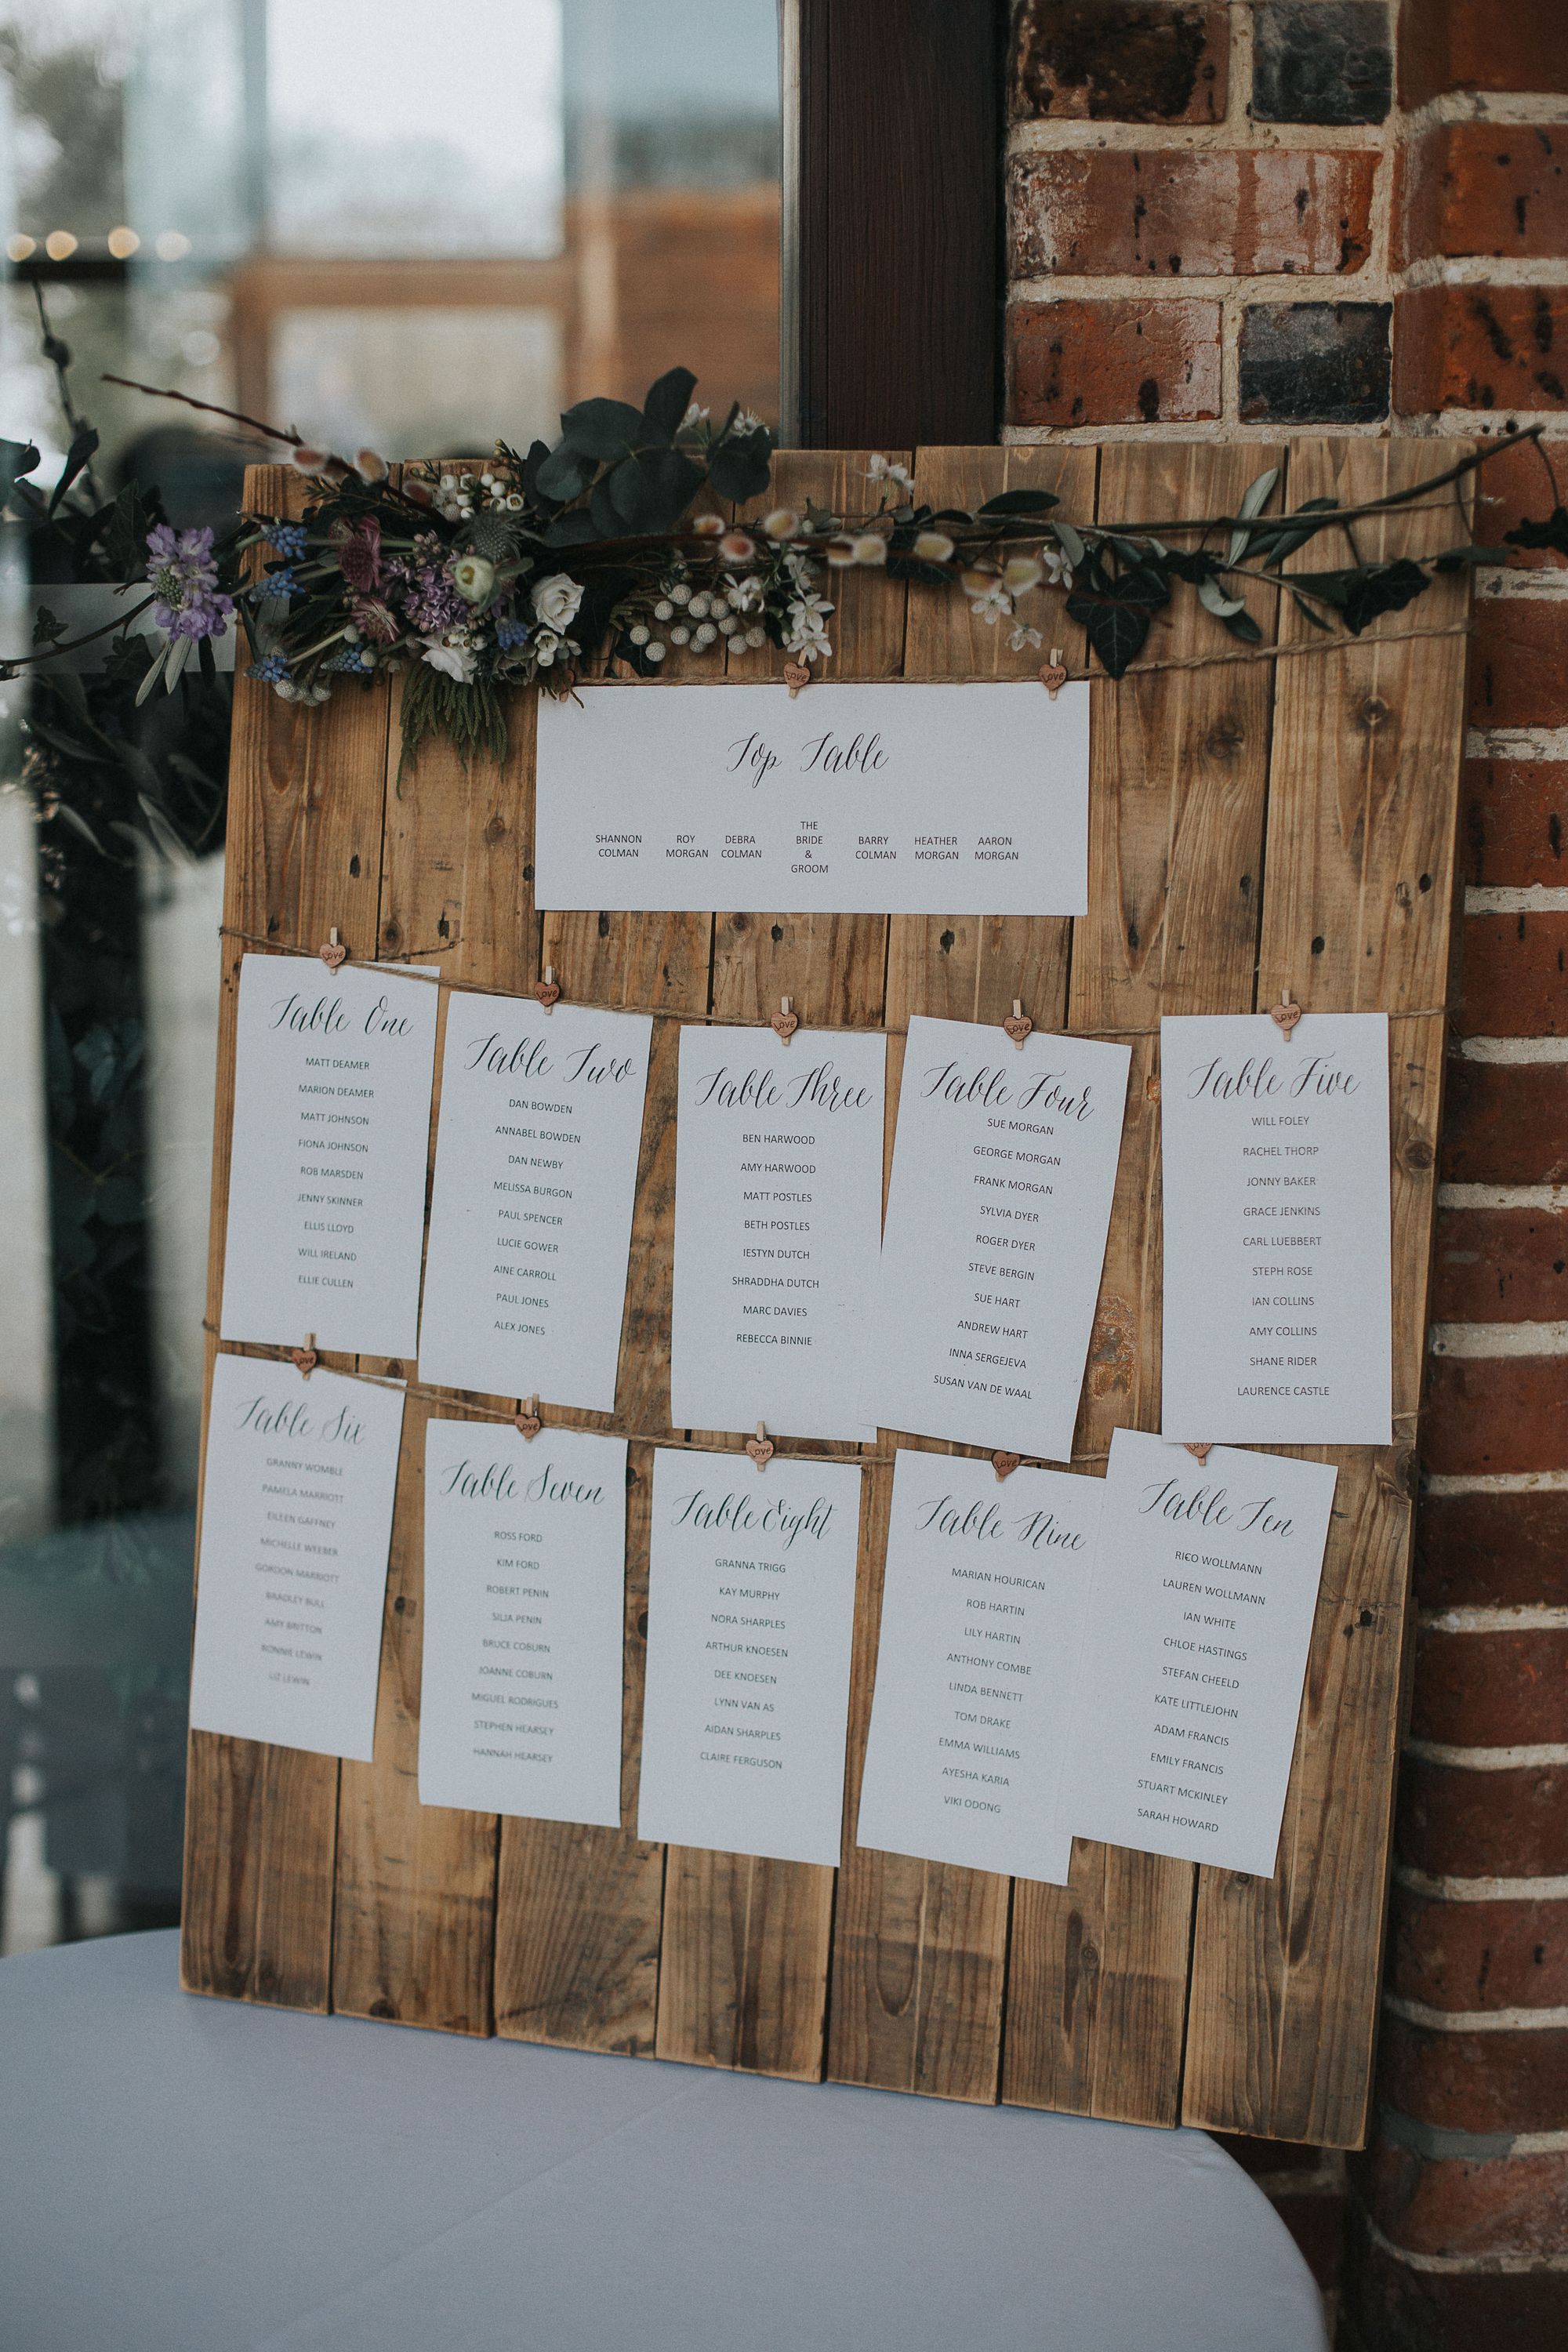 Top Table
SHANNON COLMAN
ROY MORGAN
DEBRA COLMAN
THE BRIDE & GROOM
BARRY COLMAN
HEATHER MORGAN
AARON MORGAN
Table One
MATT DEAMER
MARION DEAMER
MATT JOHNSON
FIONA JOHNSON
ROB MARSDEN
JENNY SKINNER
ELLIS LLOYD
WILL IRELAND
ELLIE CULLEN
Table Two
DAN BOWDEN
ANNABEL BOWDEN
DAN NEWBY
MELISSA BURGON
PAUL SPENCER
LUCIE GOWER
AINE CARROLL
PAUL JONES
ALEX JONES
Table Three
BEN HARWOOD
AMY HARWOOD
MATT POSTLES
BETH POSTLES
IESTYN DUTCH
SHRADDHA DUTCH
MARC DAVIES
REBECCA BINNIE
Table Four
SUE MORGAN
GEORGE MORGAN
FRANK MORGAN
SYLVIA DYER
ROGER DYER
STEVE BERGIN
SUE HART
ANDREW HART
INNA SERGEJEVA
SUSAN VAN DE WAAL
Table Five
WILL FOLEY
RACHEL THORP
JONNY BAKER
GRACE JENKINS
CARL LUEBBERT
STEPH ROSE
IAN COLLINS
AMY COLLINS
SHANE RIDER
LAURENCE CASTLE
Table Six
GRANNY WOMBLE
PAMELA MARRIOTT
EILEEN GAFFNEY
MICHELLE WEEBER
GORDON MARRIOTT
BRADLEY BULL
AMY BRITTON
RONNIE LEWIN
LIZ LEWIN
Table Seven
ROSS FORD
KIM FORD
ROBERT PENIN
SILJA PENIN
BRUCE COBURN
JOANNE COBURN
MIGUEL RODRIGUES
STEPHEN HEARSEY
HANNAH HEARSEY
Table Eight
GRANNA TRIGG
KAY MURPHY
NORA SHARPLES
ARTHUR KNOESEN
DEE KNOESEN
LYNN VAN AS
AIDAN SHARPLES
CLAIRE FERGUSON
Table Nine
MARIAN HOURICAN
ROB HARTIN
LILY HARTIN
ANTHONY COMBE
LINDA BENNETT
TOM DRAKE
EMMA WILLIAMS
AYESHA KARIA
VIKI ODONG
Table Ten
RICO WOLLMANN
LAUREN WOLLMANN
IAN WHITE
CHLOE HASTINGS
STEFAN CHEELD
KATE LITTLEJOHN
ADAM FRANCIS
EMILY FRANCIS
STUART MCKINLEY
SARAH HOWARD
Love
Love
Love
Love
Love
Love
Love
Love
Love
Love
Love
Love